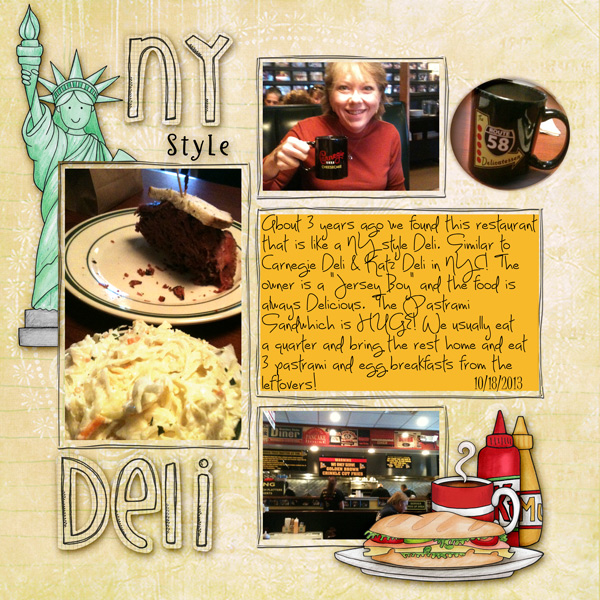 NY
Style
ROUTE
58
Delicatessen
About 3 years ago we found this restaurant
that is like a NY style Deli. Similar to
Carnegie Deli & Katz Deli in NYC! The
owner is a "Jersey Boy" and the food is
always Delicious. The Pastrami
Sandwhich is HUGE! We usually eat
a quarter and bring the rest home and eat
3 pastrami and egg breakfasts from the
leftovers!
10/18/2013
Diner
GOLDEN BROWN
CRINKLE CUT FRIES
Deli